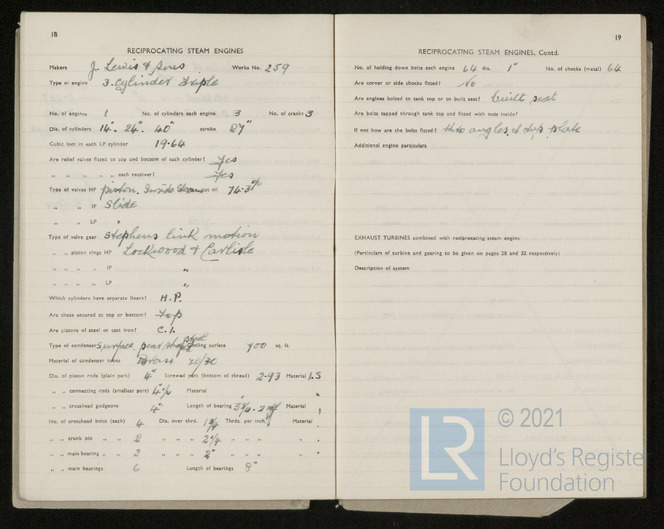 18
RECIPROCATING STEAM ENGINES
Makers J. Lewis & Sons Works No. 259
Type of engine 3. Cylinder Triple
No. of engines 1 No. of cylinders each engine 3 No. of cranks 3
Dia. of cylinders 14". 24". 40" stroke 27"
Cubic feet in each LP cylinder 19.64
Are relief valves fitted to top and bottom of each cylinder? Yes
" " " " each receiver? Yes
Type of valves HP piston. Inside
" " IP Slide
" " LP "
Type of valve gear Stephens link motion
" " piston rings HP Lockwood & Carlisle
" " " IP "
" " " LP "
Which cylinders have separate liners? H.P.
Are these secured at top or bottom? Top
Are pistons of steel or cast iron? C.I.
Type of condenser Surface, cooling surface 700 sq. ft.
Material of condenser tubes Brass 70/30
Dia. of piston rods (plain part) 4" Screwed part (bottom of thread) 2.93 Material
" " connecting rods (smallest part) Material
" " crosshead gudgeons 4" Length of bearing Material
No. of crosshead bolts (each) 4 Dia. over thrd. Thrds. per inch Material
" " crank pin " 2 " " "
" " main bearing " 2 " " 2" " "
" " main bearings 6 Length of bearings 8"
19
RECIPROCATING STEAM ENGINES, Contd.
No. of holding down bolts each engine 64 dia. 1" No. of chocks (metal) 64
Are corner or side chocks fitted? No
Are engines bolted to tank top or on built seat? built seat
Are bolts tapped through tank top and fitted with nuts inside?
If not how are the bolts fitted? thro angles & top plate
Additional engine particulars
EXHAUST TURBINES combined with reciprocating steam engine
(Particulars of turbine and gearing to be given on pages 28 and 32 respectively)
Description of system
LR
© 2021
Lloyd's Register
Foundation